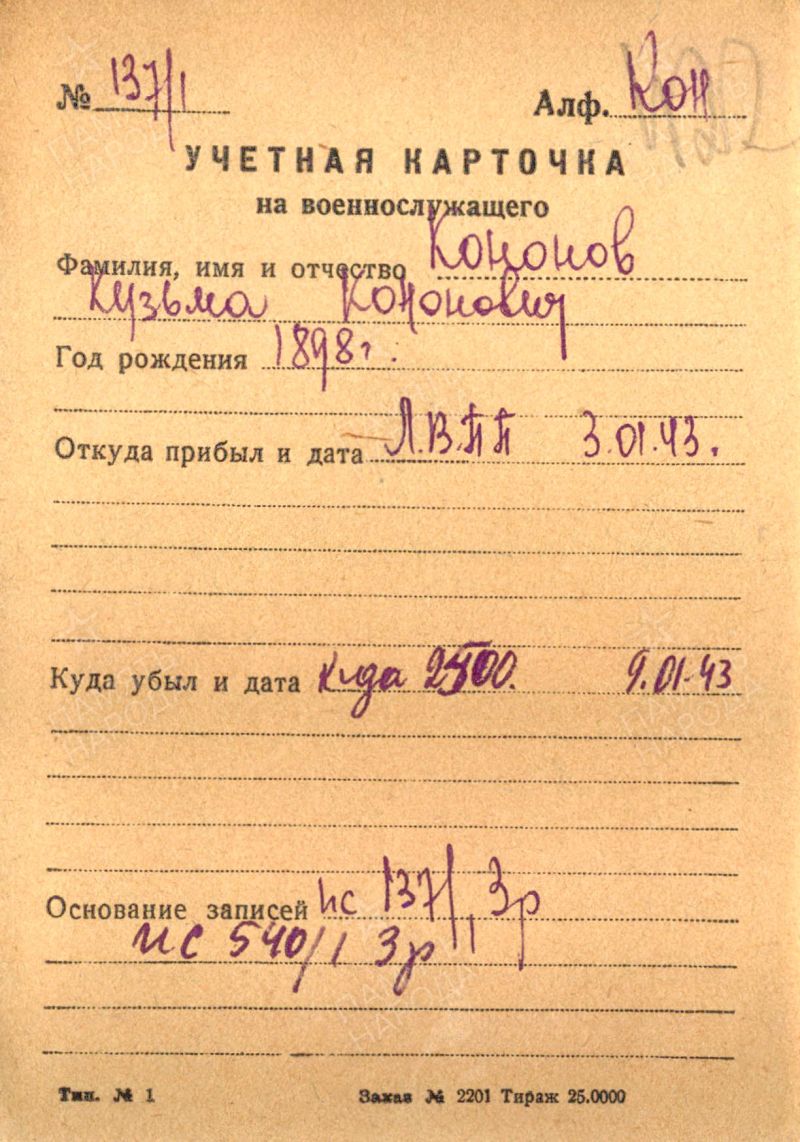 № 137/1
Алф. Кон
УЧЕТНАЯ КАРТОЧКА
на военнослужащего
Фамилия, имя и отчество Кононов
Кузьма Кононович
Год рождения 1898 г.
Откуда прибыл и дата Л.В.П.П 3.01.43.
Куда убыл и дата 9.01.43
Основание записей ис 137/1, 3р
ис 540/1 3р
Тип. № 1
Заказ № 2201 Тираж 25.0000